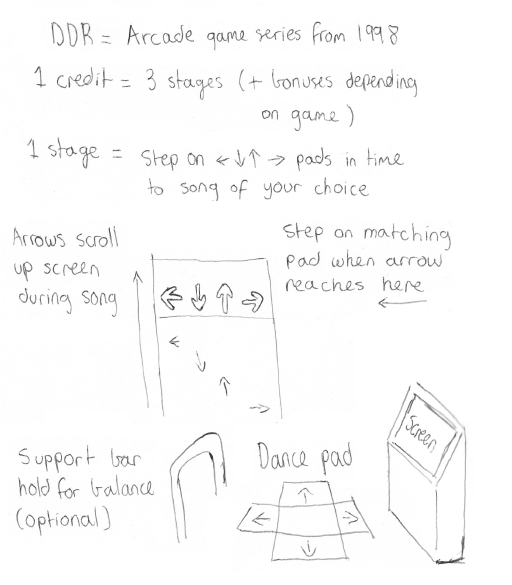 DDR = Arcade game series from 1998
1 credit = 3 stages (+ bonuses depending
on game)
1 stage = Step on ← ↓ ↑ → pads in time
to song of your choice
Arrows scroll
up screen
during song
Step on matching
pad when arrow
reaches here
←
Support bar
hold for balance
(optional)
Dance pad
Screen